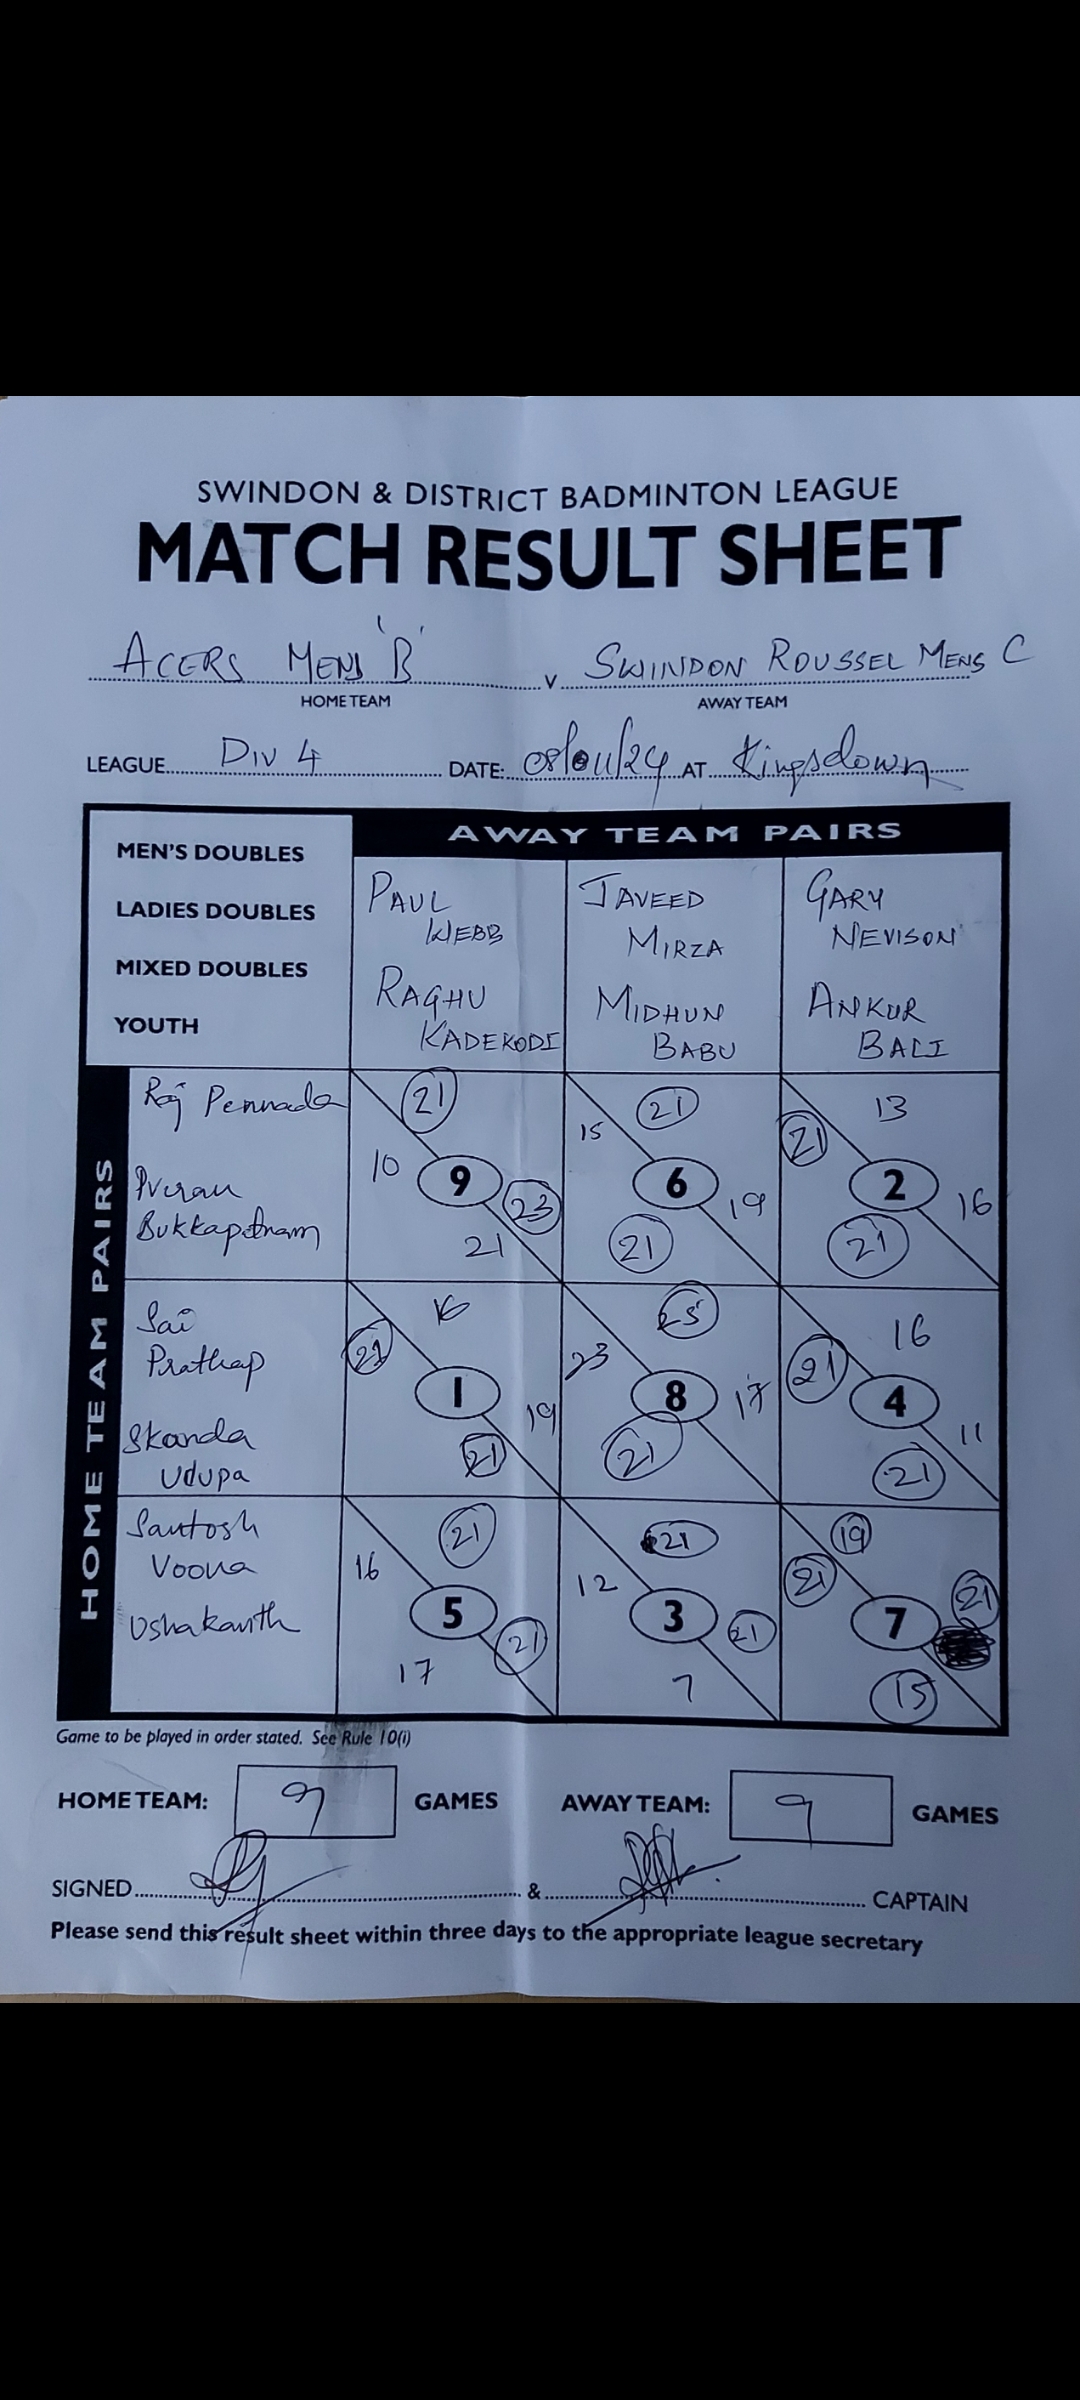 SWINDON & DISTRICT BADMINTON LEAGUE
MATCH RESULT SHEET
ACERS MENS 'B' v SWINDON ROUSSEL MENS C
HOME TEAM AWAY TEAM
LEAGUE DIV 4 DATE: 08/01/24 AT Kingsdown
AWAY TEAM PAIRS
MEN'S DOUBLES
LADIES DOUBLES
MIXED DOUBLES
YOUTH
PAUL WEBB
RAGHU KADEKODI
JAVEED MIRZA
MIDHUN BABU
GARY NEVISON
ANKUR BALI
HOME TEAM PAIRS
Raj Pennada
Bukkapatnam
21 21 13
10 15 21
9 6 2
23 19 16
21 21 21
Sai
Prathap
Skanda
Udupa
16 25 16
21 23 21
1 8 4
19 17 11
21 21 21
Santosh
Voona
Ushakanth
21 21 19
16 12 21
5 3 7
21 21 21
17 7 15
Game to be played in order stated. See Rule 10(i)
HOME TEAM: 9 GAMES AWAY TEAM: 9 GAMES
SIGNED & CAPTAIN
Please send this result sheet within three days to the appropriate league secretary